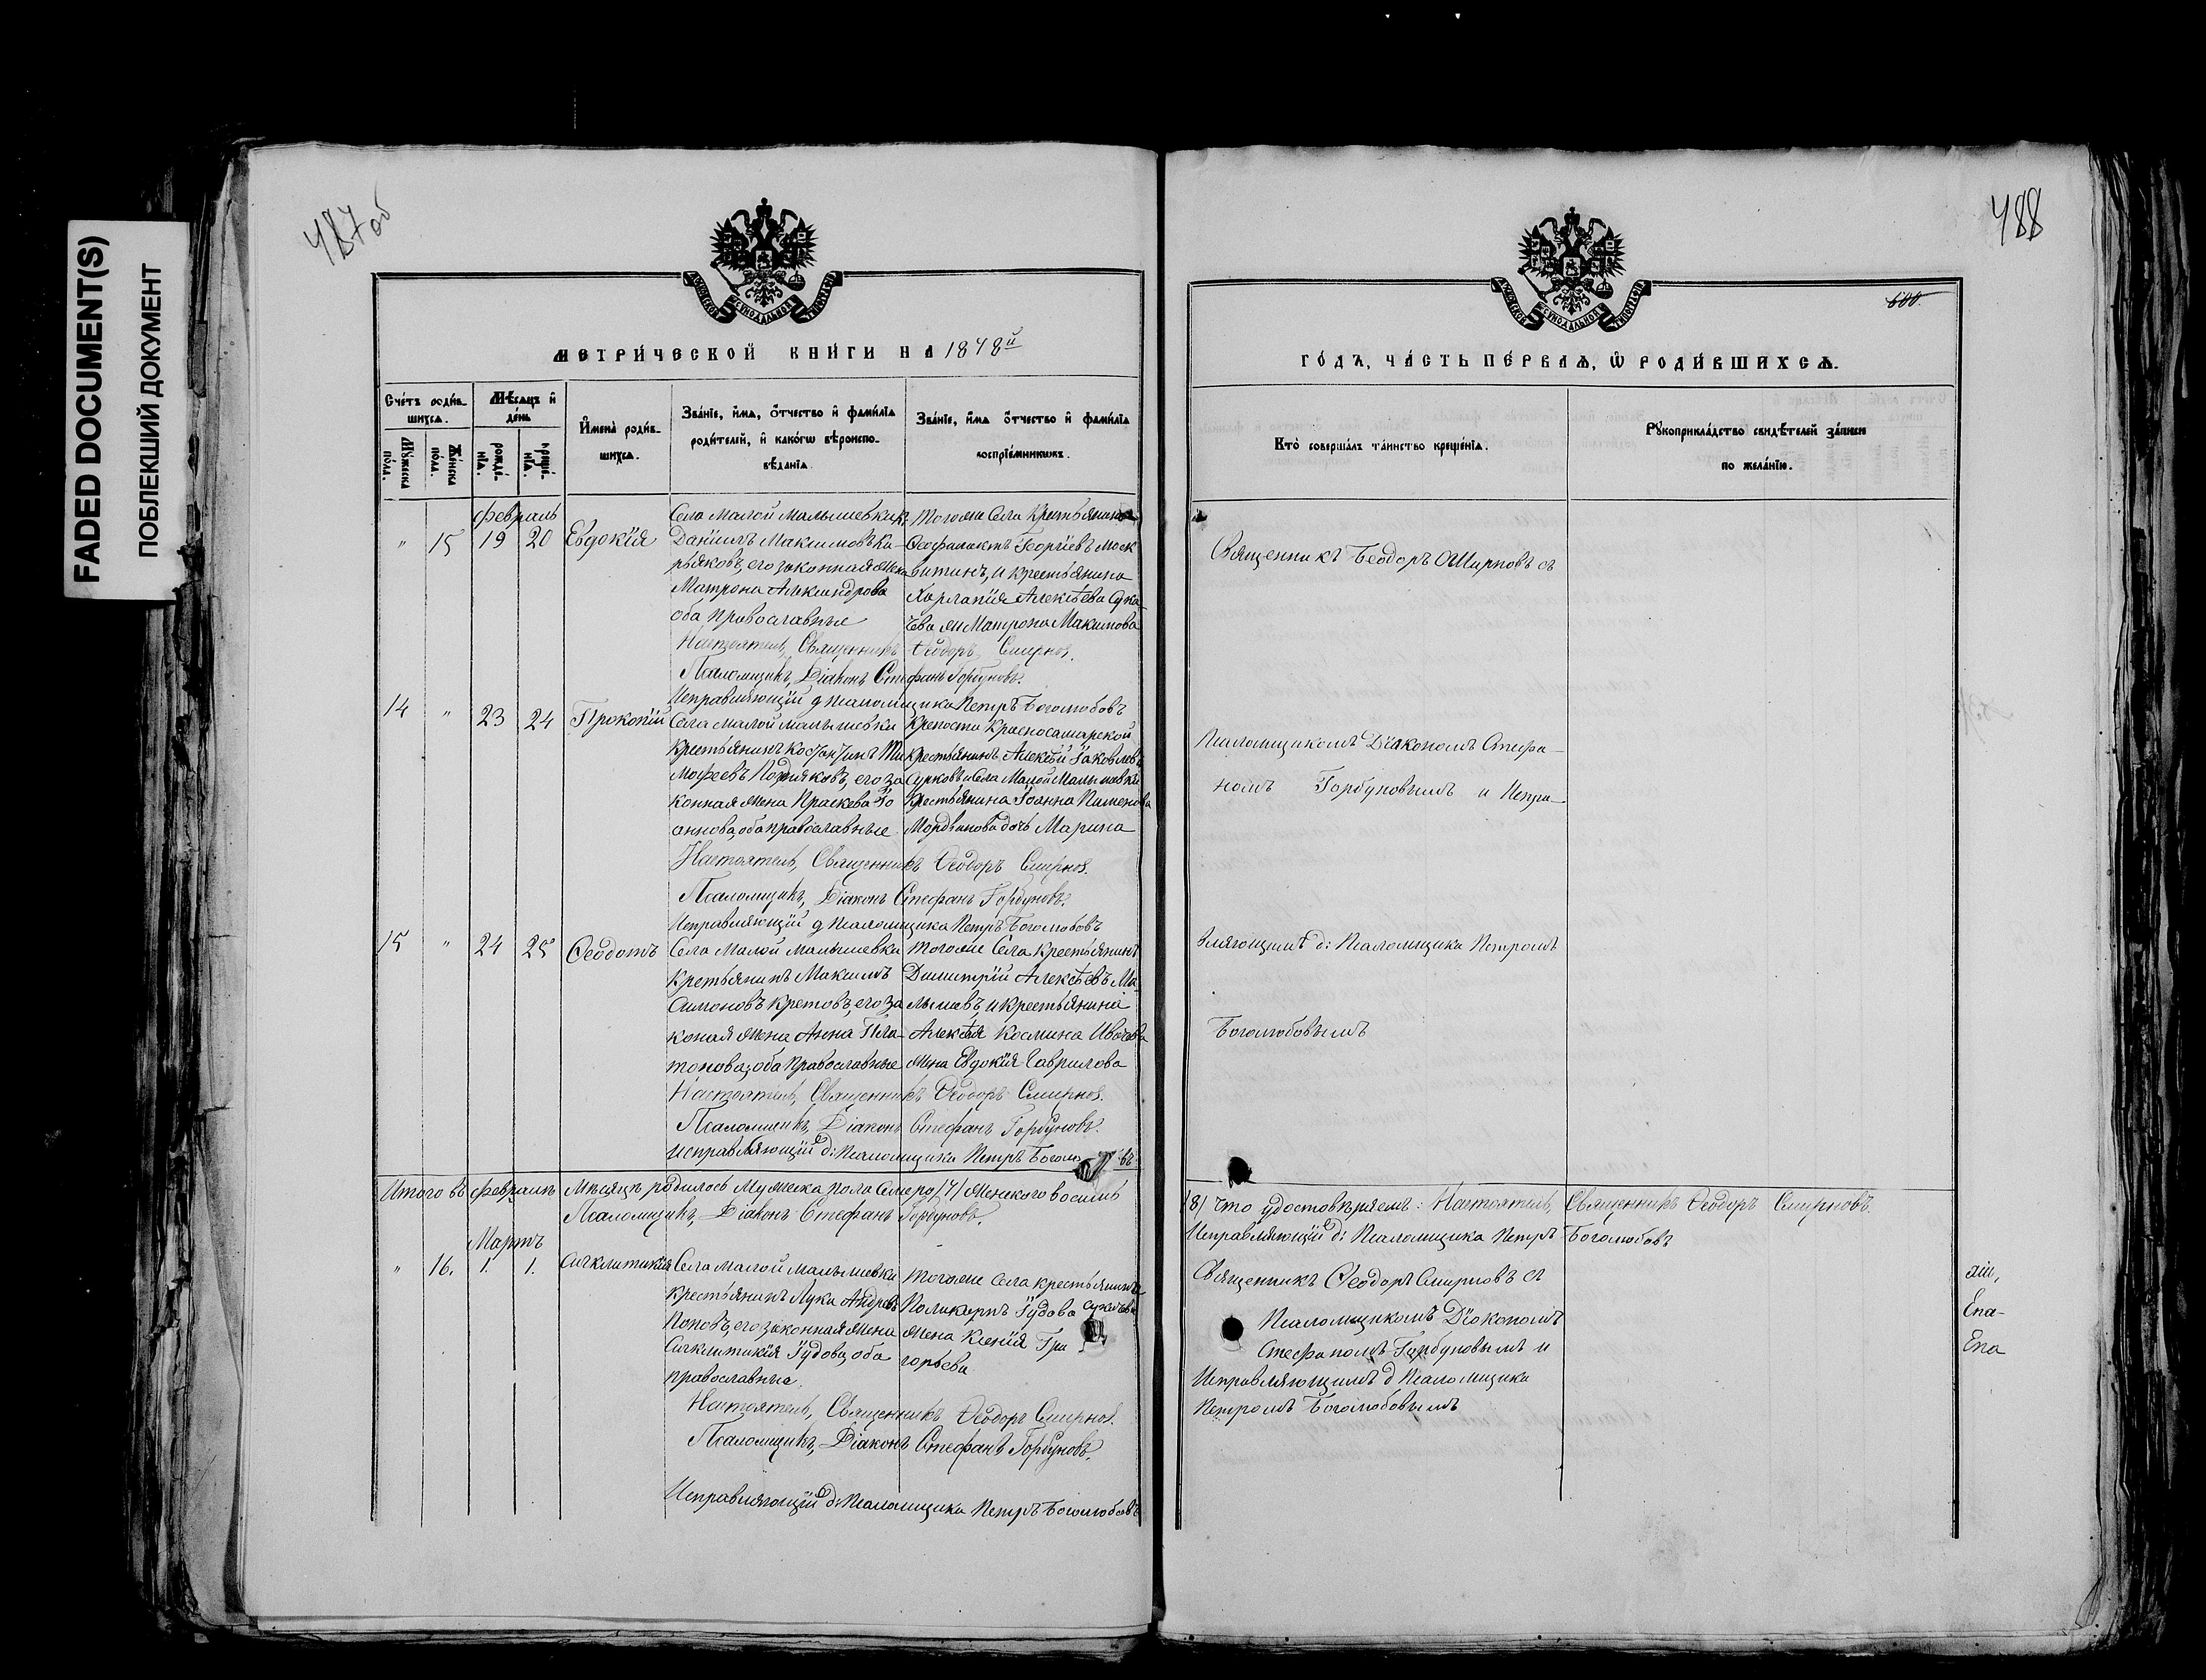 FADED DOCUMENT(S)
ПОБЛЕКШИЙ ДОКУМЕНТ
487 об
МЕТРИЧЕСКОЙ КНИГИ НА 1878й
Счетъ родив-
шихся.
Мужеска пола.
Женска пола.
Мѣсяцъ и
день
рожде-
нія.
креще-
нія.
Имена родив-
шихся.
Званіе, имя, отчество и фамилія
родителей, и какогω вѣроиспо-
вѣданія.
Званіе, имя отчество и фамилія
воспріемникωвъ.
февраль
" 15 19 20 Евдокія
Села Малой Малышевки к.
Даніилъ Максимовъ Ки-
рьяковъ, его законная жена
Матрона Александрова
оба православные
Тогоже Села Крестьянинъ
Феофилактъ Георгіевъ Моск
витинъ, и крестьянина
Харлампія Алексѣева
жена Матрона Макимова
Настоятель, Священникъ Ѳеодоръ Смирнов.
Псаломщикъ, Діаконъ Стефанъ Горбуновъ.
Исправляющій д псаломщика Петръ Боголюбовъ
14 " 23 24 Прокопій
Села Малой Малышевки
Крестьянинъ Костантинъ Ти
мофеевъ его за
конная жена Праскева Іо
аннова, оба православные
Крепости Красносамарской
крестьянинъ Алексѣй Іаковлевъ
Сурковъ и Села Малой Малышевки
Крестьянина Іоанна Пименова
Мордвинова дочь Марина
Настоятель, Священникъ Ѳеодоръ Смирнов.
Псаломщикъ, Діаконъ Стефанъ Горбуновъ.
Исправляющій д псаломщика Петръ Боголюбовъ
15 " 24 25 Ѳеодотъ
Села Малой Малышевки
Кретьянинъ Максимъ
Симоновъ Кретовъ, его за
коная жена Анна Пла-
тонова, оба Православные
Тогоже Села Крестьянинъ
Димитрій Алексѣевъ Ма-
лышевъ, и крестьянина
Алексѣя Космина
жена Евдокія Гаврилова
Настоятель, Священникъ Ѳеодоръ Смирнов.
Псаломщикъ, Діаконъ Стефанъ Горбуновъ.
исправляющій д: псаломщика Петръ
Итого въ февралѣ Мѣсяцѣ родилось Мужеска пола Семеро /7/ Женскаго восемь
Псаломщикъ, Діаконъ Стефанъ Горбуновъ.
Мартъ
" 16. 1. 1. Сигклитикія
Села Малой Малышевки
крестьянинъ Лука Андревъ
Поповъ, его законная жена
Сигклитикія Іудова, оба
православные
Тогоже села крестьянина
Поликарпа Іудова
жена Ксенія Гри
горьева
Настоятель, Священникъ Ѳеодоръ Смирнов.
Псаломщикъ, Діаконъ Стефанъ Горбуновъ.
Исправляющій д: Псаломщика Петръ Боголюбовъ
488
600.
ГОДЪ, ЧАСТЬ ПЕРВАЯ, Ѡ РОДИВШИХСЯ.
Кто совершалъ таинство крещенія.
Рукоприкладство свидѣтелей записи
по желанію.
Священникъ Ѳеодоръ Смирновъ съ
Псаломщикомъ Діакономъ Стефа-
номъ Горбуновымъ и Испра-
вляющимъ д: Псаломщика Петромъ
Боголюбовымъ
/8/ Что удостовѣряемъ: Настоятель, Священникъ Ѳеодоръ Смирновъ.
Исправляющій д: Псаломщика Петръ Боголюбовъ
Священникъ Ѳеодоръ Смирновъ съ
Псаломщикомъ Діакономъ
Стефаномъ Горбуновымъ и
Исправляющимъ д Псаломщика
Петромъ Боголюбовымъ
Епа-
Епа